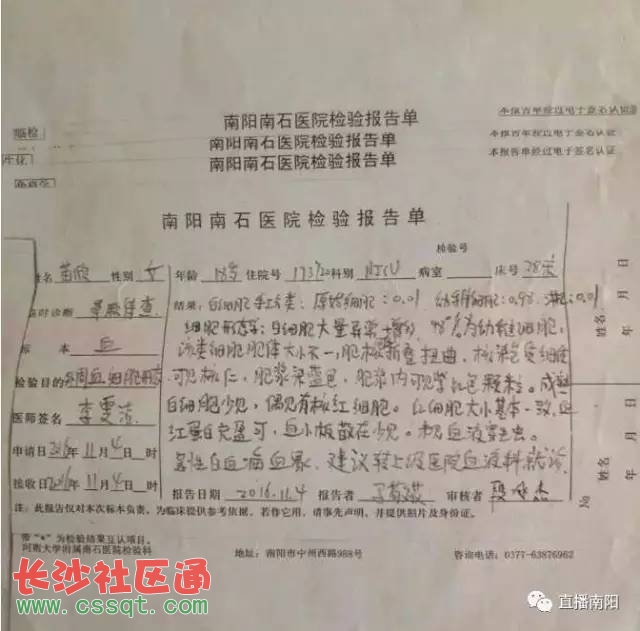 南阳南石医院检验报告单
南阳南石医院检验报告单
南阳南石医院检验报告单
本报告单经过电子签名认证
本报告单经过电子签名认证
临检
生化
南阳南石医院检验报告单
检验号
姓名 苗欣 性别 女 年龄 18岁 住院号 科别 病室 床号 28床
临时诊断
标 本 血
检验目的 外周血细胞形态
医师签名
申请日 2016年11月4日 时
接收日 2016年11月4日 时
结果: 白细胞手工分类: 原始细胞: 0.01 幼稚细胞: 0.98 淋巴: 0.01
细胞形态: 白细胞大量异常增殖, 98%为幼稚细胞,
该类细胞胞体大小不一, 胞核折叠扭曲, 核染色质细致
可见核仁, 胞浆染蓝色, 胞浆内可见紫红色颗粒。成熟
白细胞少见, 偶见有核红细胞。红细胞大小基本一致, 血
红蛋白充盈可, 血小板散在少见。
急性白血病血象, 建议转上级医院血液科就诊
报告日期 2016.11.4 报告者 审核者
注: 此报告仅对本次标本负责。为临床提供参考依据。若作它用, 请事先声明, 并提供照片及身份证。
带"*"为检验结果互认项目。
河南大学附属南石医院检验科
地址: 南阳市中州西路988号
咨询电话: 0377-63876962
姓名
年 月 日
姓名
年 月 日
№
长沙社区通
www.cssqt.com
直播南阳